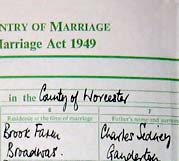 NTRY OF MARRIAGE
Marriage Act 1949
in the County of Worcester
6
7
Residence at the time of marriage
Father's name and surname
Brook Farm
Charles Sidney
Broadwas.
Ganderton